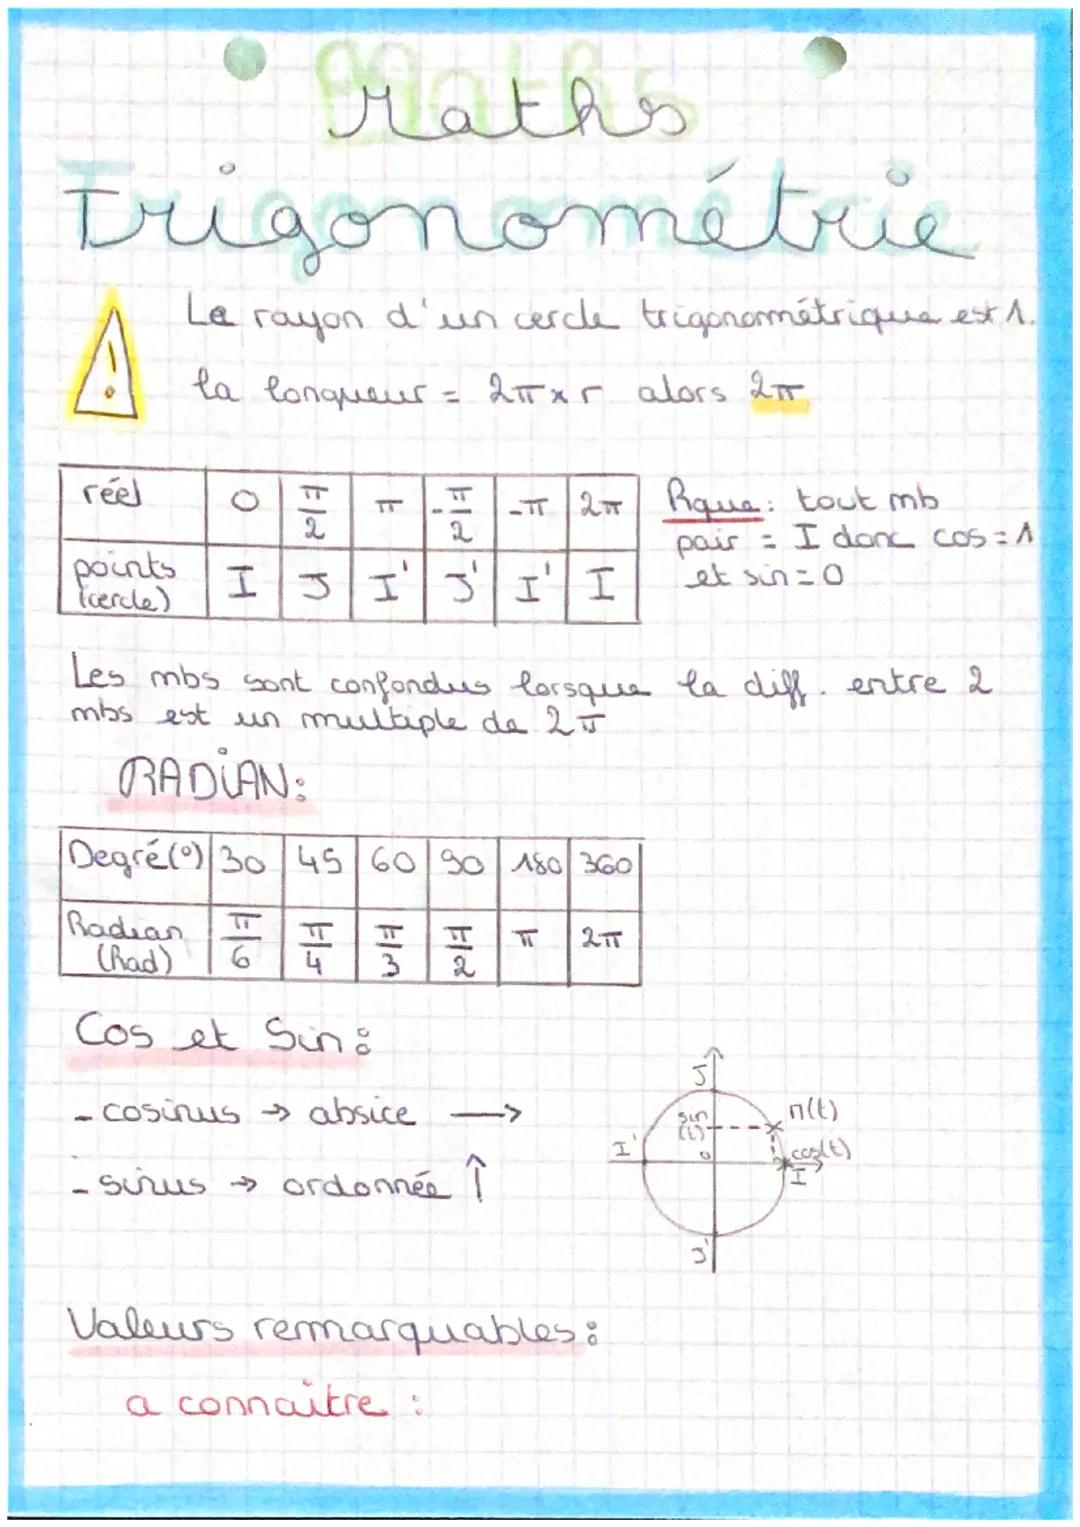 Maths
Trigonométrie
Le rayon d'un cercle trigonométrique est 1.
la longueur = 2π x r alors 2π
réel 0 π/2 π -π/2 -π 2π
points (cercle) I J I' J' I' I
Rque: tout mb
pair = I donc cos = 1
et sin = 0
Les mbs sont confondus lorsque la diff. entre 2
mbs est un multiple de 2π
RADIAN:
Degré(°) 30 45 60 90 180 360
Radian (Rad) π/6 π/4 π/3 π/2 π 2π
Cos et Sin:
- cosinus → absice →
- sinus → ordonnée ↑
J
sin (t)
M(t)
I'
o
cos(t)
I
J'
Valeurs remarquables:
a connaitre :